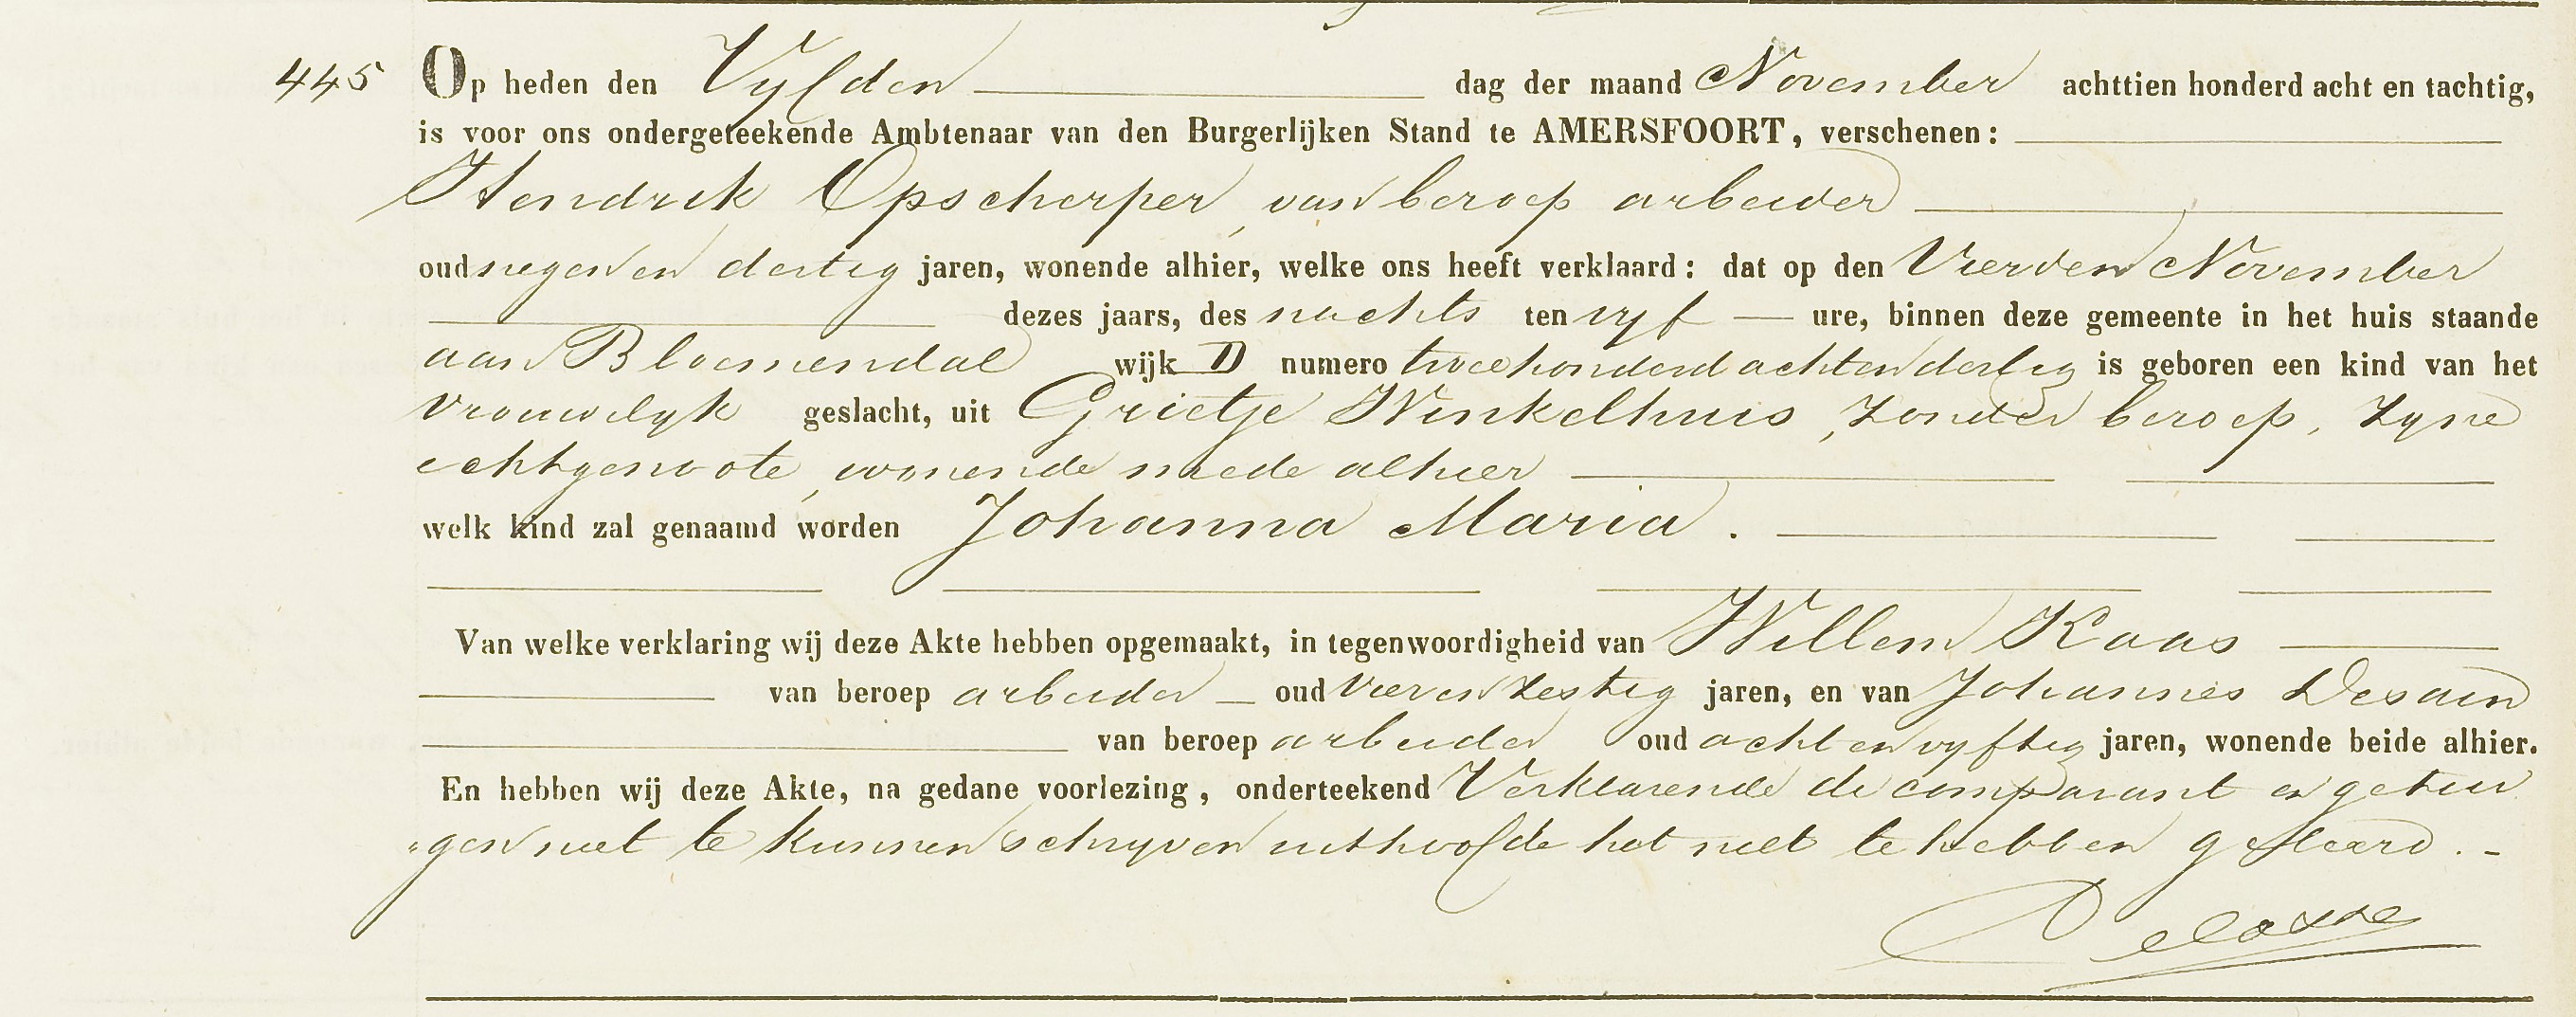 445 Op heden den Vyfden dag der maand November achttien honderd acht en tachtig,
is voor ons ondergeteekende Ambtenaar van den Burgerlijken Stand te AMERSFOORT, verschenen:
Hendrik Opscherper, van beroep arbeider
oud negen en dertig jaren, wonende alhier, welke ons heeft verklaard: dat op den Vierden November
dezes jaars, des nachts ten vyf ure, binnen deze gemeente in het huis staande
aan Bloemendal wijk D numero tweehonderd achtendertig is geboren een kind van het
vrouwelyk geslacht, uit Grietje Winkelhuis, zonder beroep, zyne
echtgenoote, wonende mede alhier
welk kind zal genaamd worden Johanna Maria.
Van welke verklaring wij deze Akte hebben opgemaakt, in tegenwoordigheid van Willem Kaas
van beroep arbeider oud vierenzestig jaren, en van Johannes Desain
van beroep arbeider oud achtenvyftig jaren, wonende beide alhier.
En hebben wij deze Akte, na gedane voorlezing, onderteekend Verklarende de comparant en getui
"gen niet te kunnen schryven uithoofde het niet te hebben geleerd.-